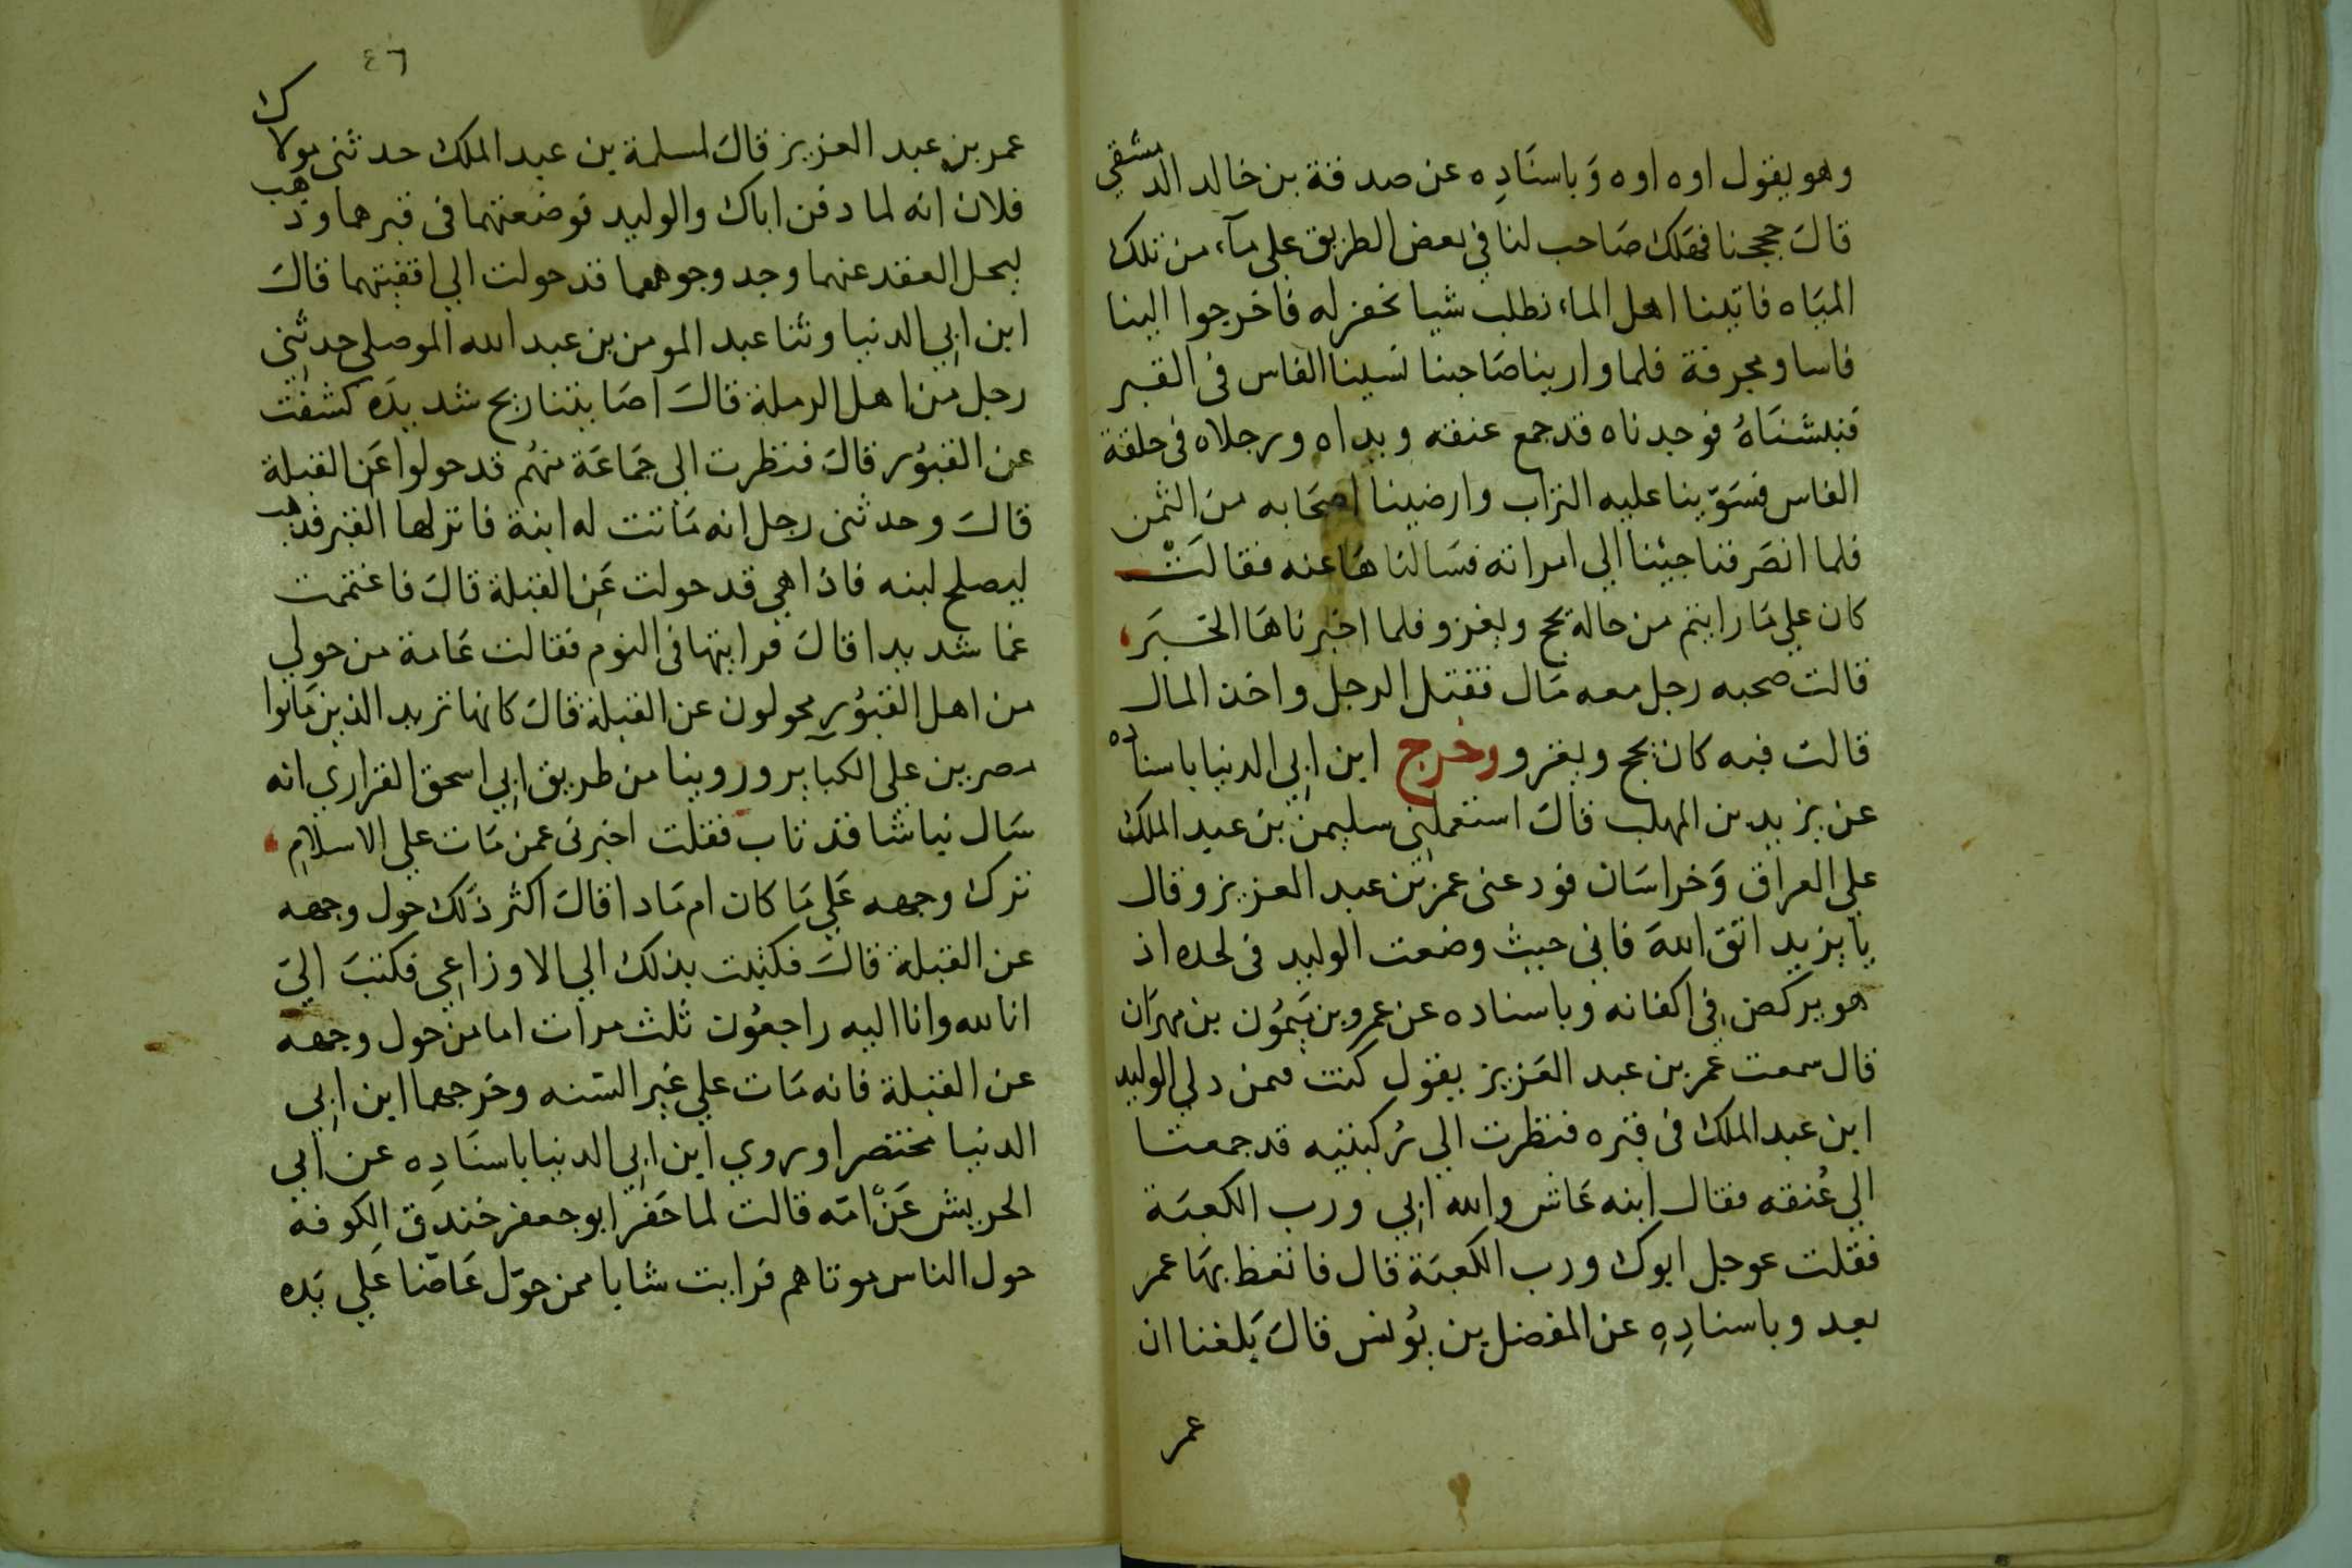 وهو يقول اوه اوه وَباسنَادِه عن صدقة بن خالد الدمشقي
قاكَ حججنا فهَلك صَاحب لنا في بعض الطريق على مآء من تلك
الميَاه فاتينا اهل الماء نطلب شيا نحفر له فاخرجوا الينا
فاسا ومجرفة فلما وارينا صَاحبنا نسينا الفاس فى القبر
فنبشنَاهُ فوجدناه قد جمع عنقه ويداه ورجلاه فى حلقة
الفاس فسَوّينا عليه التراب وارضينا اصحَابه منَ الثمن
فلما انصَرفنا جئنا الى امراته فسَالنَاهَا عنه فقالتْ
كان علي مَا رايتم من حاله يحج ويغزو فلما اخبرناهَا الخبرَ
قالت صحبه رجل معه مَال فقتل الرجل واخذ المال
قالت فبه كان يحج ويغزو وخرج ابن ابي الدنيا باسناده
عن يزيد بن المهلب قاكَ استعملني سليمن بن عبد الملك
علي العراق وَخراسَان فودعنى عمر بن عبد العزيز وقال
يا يزيد اتق اللهَ فانى حيث وضعت الوليد فى لحده اذ
هو يركض في اكفانه وباسناده عن عمرو بن ميمُون بن مهرَان
قال سمعت عمر بن عبد العَزيز يقول كنت فمن دلي الوليد
ابن عبد الملك فى قبره فنظرت الي رُكبتيه قد جمعتا
الي عُنقه فقال ابنه عَاش والله ابي ورب الكعبَة
فقلت عوجل ابوك ورب الكعبَة قال فاتعظ بهَا عمر
بعد وباسنادِهِ عن المفضل بن يُونس قاكَ بَلغنا ان
عمر
٤٦
عمر بن عبد العزيز قاكَ لمسلمة بن عبد الملك حدثنى مولاك
فلان انه لما دفن اباك والوليد فوضعتهما فى قبرهما وذهب
ليحل العقد عنهما وجد وجوههما قد حولت الي اقفيتهما قاكَ
ابن ابي الدنيا وثنا عبد المومن بن عبد الله الموصلي حدثنى
رجل من اهل الرملة قاكَ اصَابتنا ريح شديدَه كشفت
عن القبوُر قاكَ فنظرت الى جمَاعَة منهُم قد حولوا عَن القبلة
قاكَ وحدثنى رجل انه مَاتت له ابنة فانزلها القبر فذهب
ليصلح لبنه فاذا هي قد حولت عَن القبلة قاكَ فاغتممت
غما شديدا قاكَ فرايتها فى النوم فقالت عَامة من حولي
من اهل القبوُر محولون عن القبلة قاكَ كانها تريد الذين مَاتوا
مصرين على الكبآير وروينا من طريق ابي اسحق الفزاري انه
سَال نباشا قد تاب فقلت اخبرنى عمن مَات علي الاسلام
ترك وجهه عَلي مَا كان ام مَاذا قاكَ اكثر ذَلك حول وجهه
عن القبلة قاكَ فكتبت بذلك الي الاوزاعي فكتبَ اليّ
انا لله وانا اليه راجعوُن ثلث مرات اما من حول وجهه
عن القبلة فانه مَات علي غير السّنه وخَرجهما ابن ابي
الدنيا مختصرا وروي ابن ابي الدنيا باسنَادِه عن ابي
الحريش عَنْ امّه قالت لما حَفر ابو جعفر خندق الكوفه
حول الناس موتاهم فرايت شابا ممن حوّل عَاضّا علي يَده